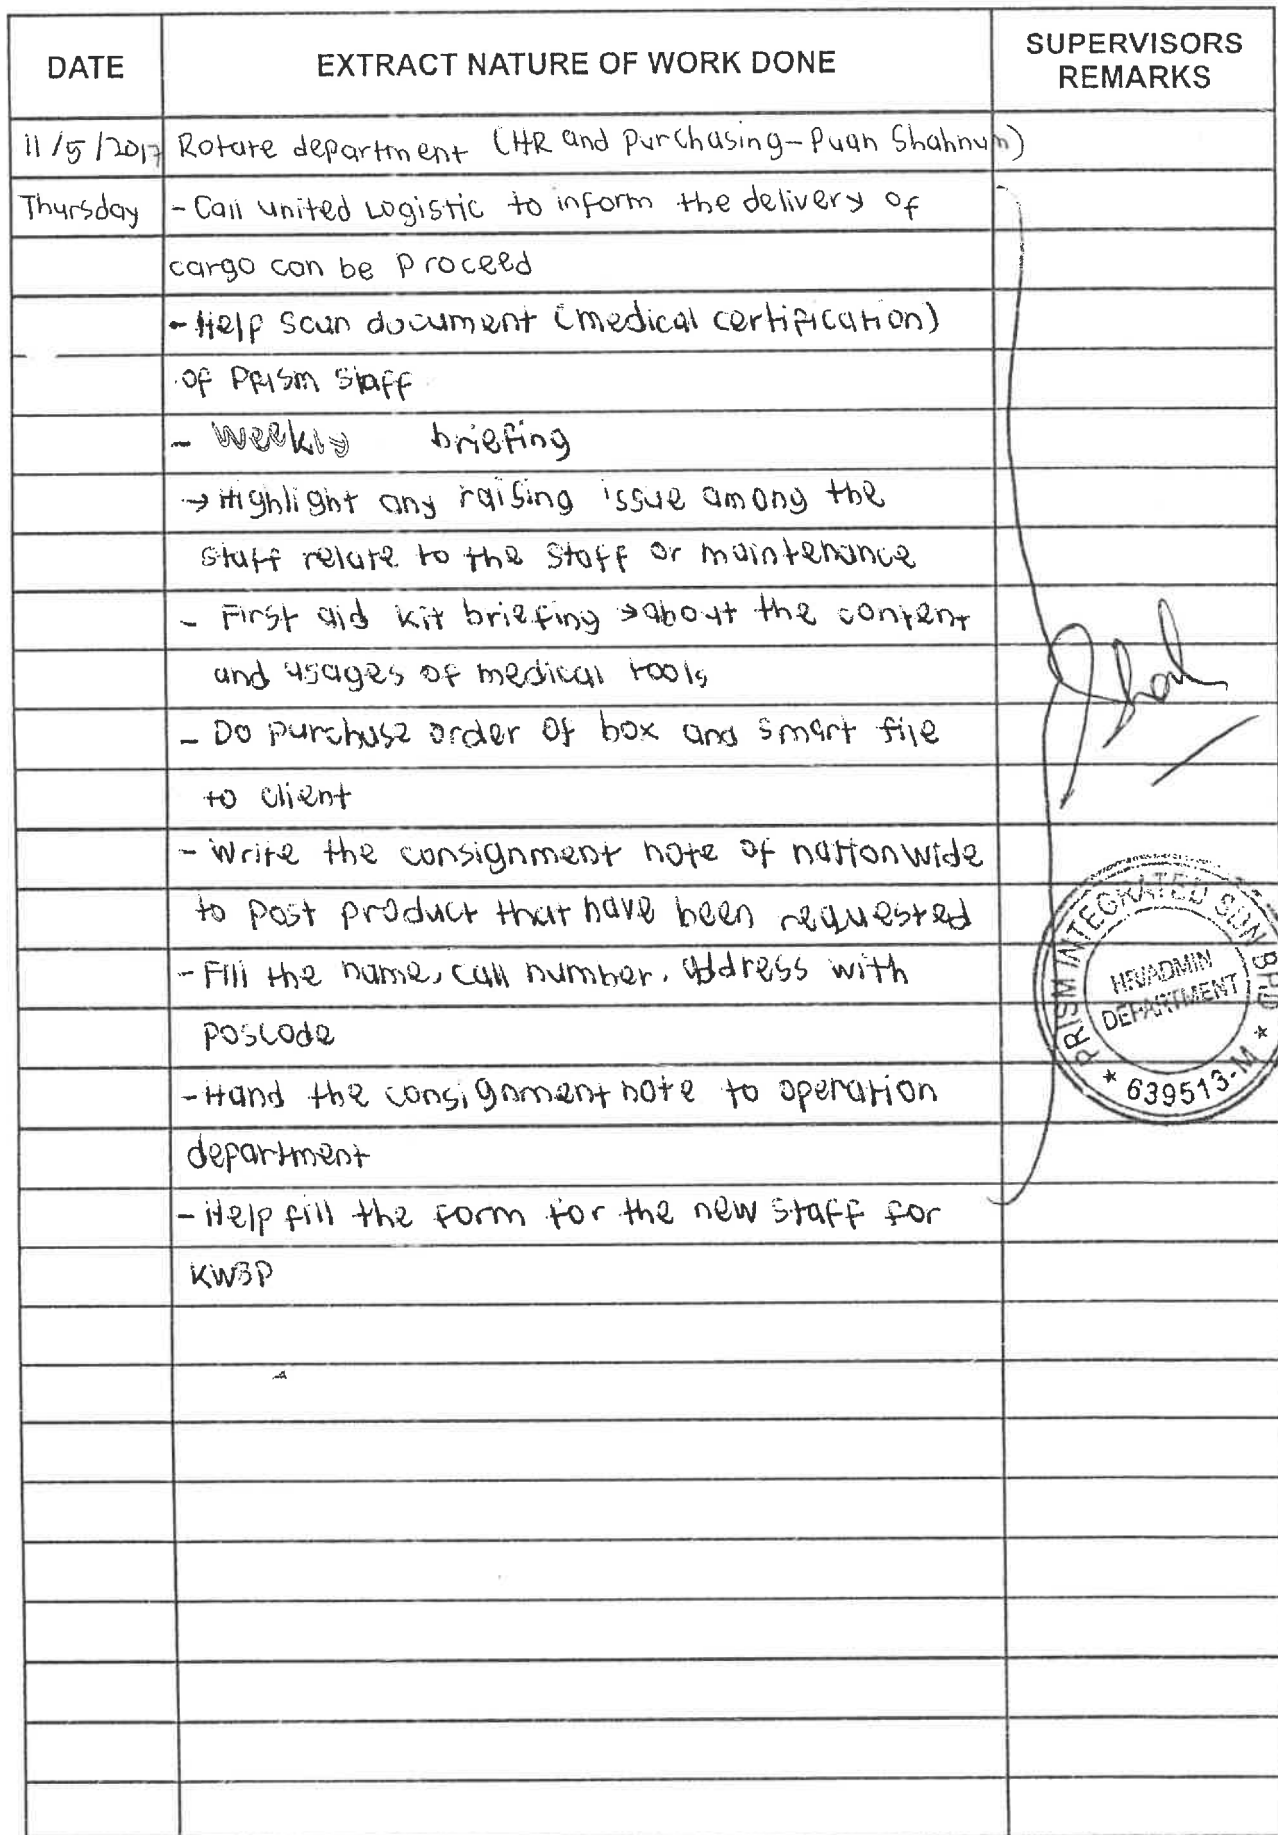 DATE
EXTRACT NATURE OF WORK DONE
SUPERVISORS
REMARKS
11/5/2017 Rotate department (HR and Purchasing-Puan Shahnum)
Thursday - Call united Logistic to inform the delivery of
cargo can be proceed
- Help scan document (medical certification)
of Prism Staff
- Weekly briefing
→ Highlight any raising issue among the
staff relate to the staff or maintenance
- First aid kit briefing → about the content
and usages of medical tools
- Do purchase order of box and smart file
to client
- Write the consignment note of nationwide
to post product that have been requested
- Fill the name, call number, address with
poscode
- Hand the consignment note to operation
department
- Help fill the form for the new staff for
KWSP
PRISM INTEGRATED SDN BHD
HR/ADMIN
DEPARTMENT
* 639513-M *